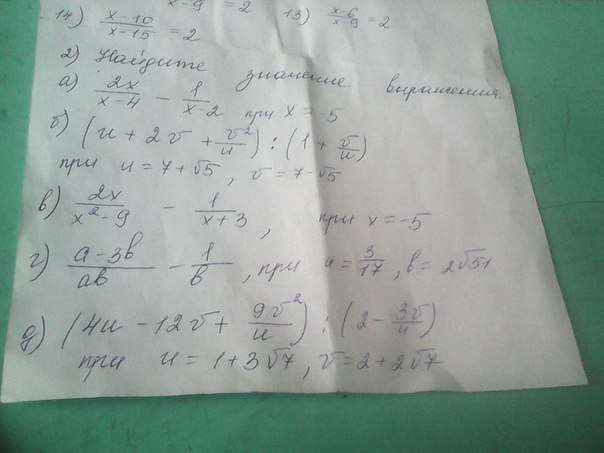 x-9 = 2
14) (x-10)/(x-15) = 2 13) (x-6)/(x-9) = 2
2) Найдите значение выражения.
а) 2x/(x-4) - 1/(x-2) при x = -5
б) (u + 2v + v²/u) : (1 + v/u)
при u = 7 + √5, v = 7 - √5
в) 2x/(x²-9) - 1/(x+3), при x = -5
г) (a-3b)/(ab) - 1/b, при a = 3/17, b = 2√51
д) (4u - 12v + 9v²/u) : (2 - 3v/u)
при u = 1 + 3√7, v = 2 + 2√7